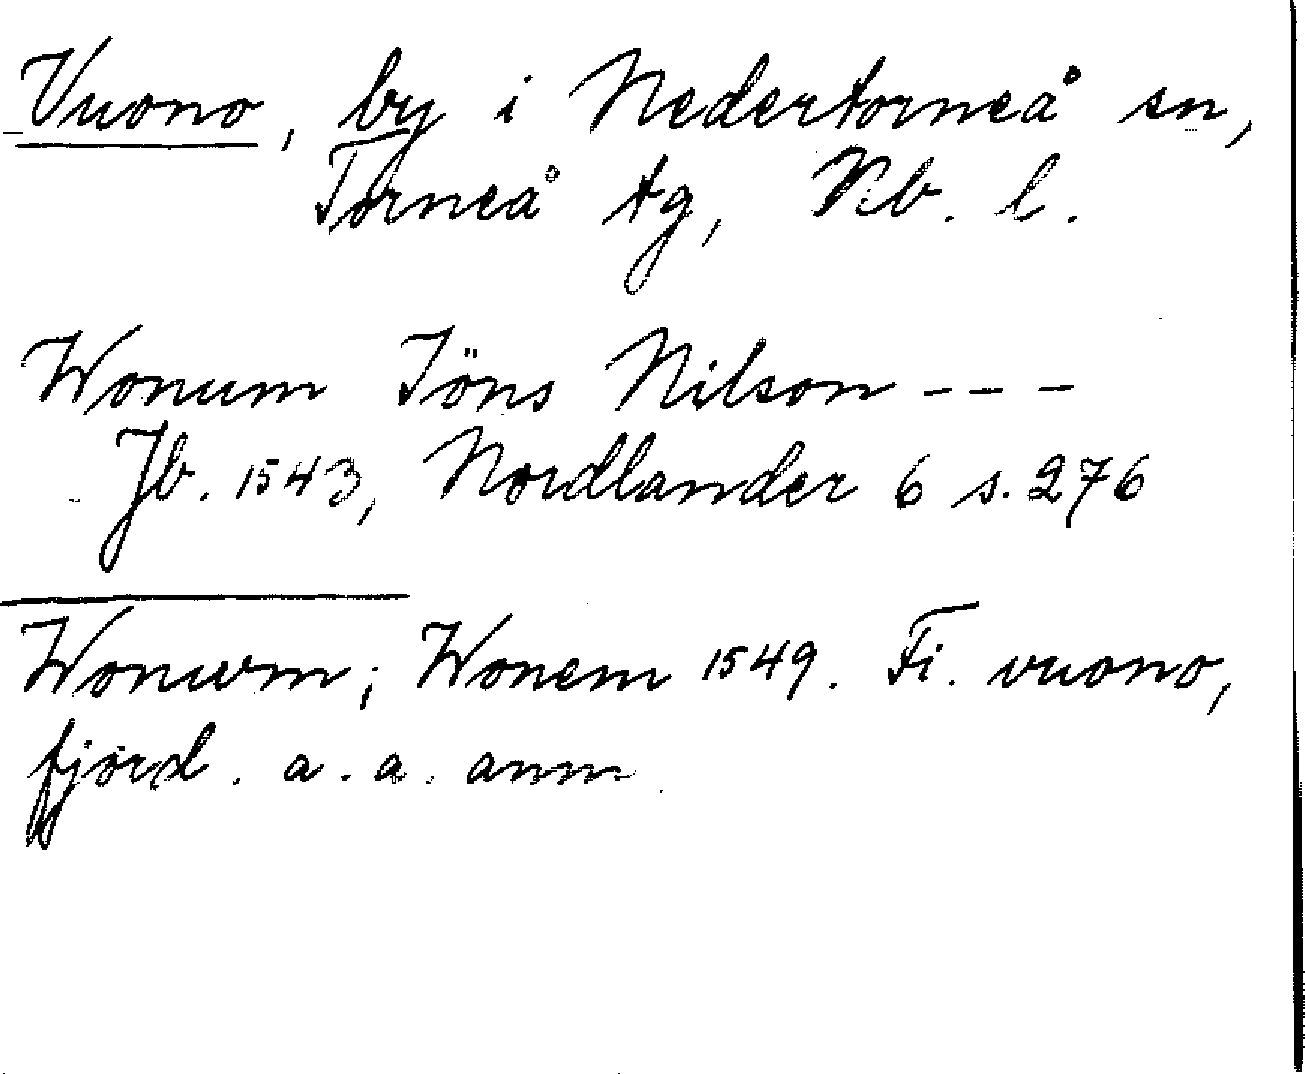 Vuono, by i Nedertorneå sn,
Torneå tg, Nb. l.
Wonum Jöns Nilson - - -
Jb. 1543, Nordlander 6 s. 276
Wonwm; Wonem 1549. Fi. vuono,
fjord. a. a. anm